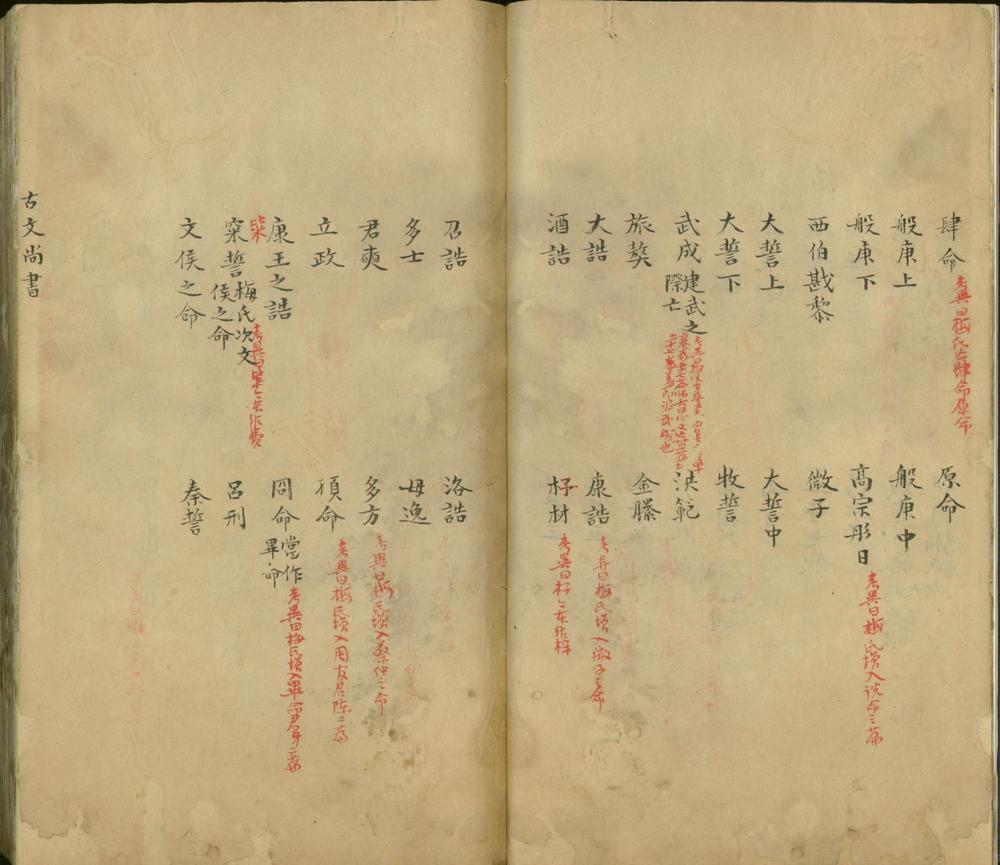 肆命 考異曰梅氏亡肆命原命 原命
般庚上 般庚中
般庚下 高宗肜日 考異曰梅氏增入說命三篇
西伯戡黎 微子
大誓上 大誓中
大誓下 牧誓
武成 建武之際亡 洪範
旅獒 金縢
大誥 康誥 考異曰梅氏增入微子之命
酒誥 杍材 考異曰杍今作梓
召誥 洛誥
多士 毋逸
君奭 多方 考異曰梅氏增入蔡仲之命
立政 顧命 考異曰梅氏增入周官君陳二篇
康王之誥 冏命 當作畢命 考異曰梅氏增入畢命君牙二篇
粊誓 梅氏次文侯之命 呂刑
文侯之命 秦誓
古文尚書